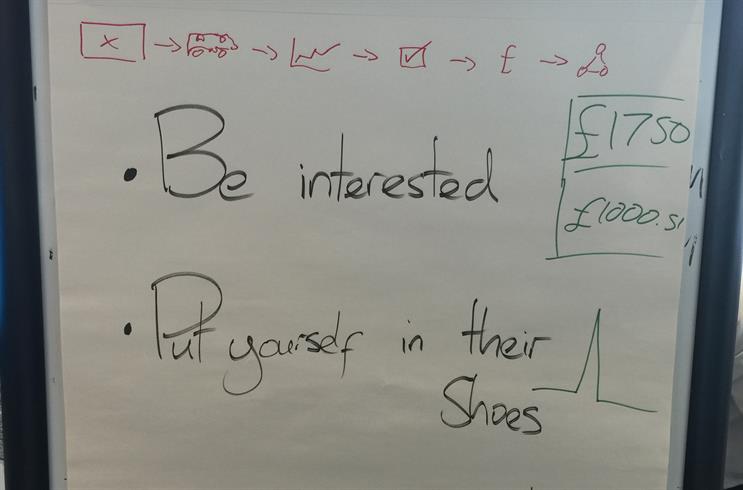 x → → → → £ →
• Be interested
£1750
£1000.51
• Put yourself in their
Shoes